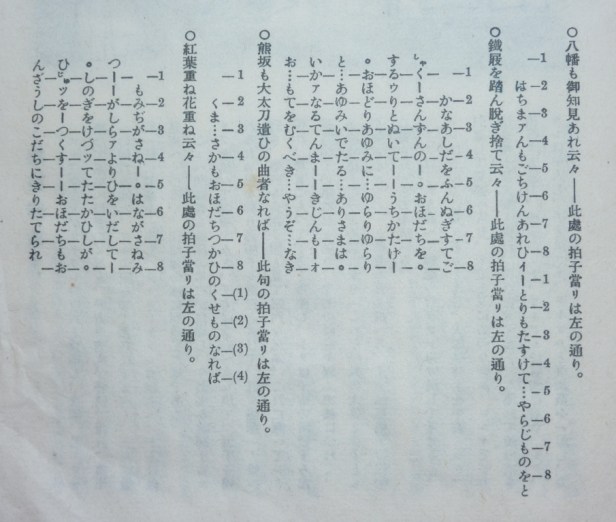 〇八幡も御知見あれ云々――此處の拍子當りは左の通り。
1 2 3 4 5 6 7 8 1 2 3 4 5 6 7 8
はちまァんもごちけんあれひィーとりもたすけて…やらじものをと
〇鐵屐を踏ん脱ぎ捨て云々――此處の拍子當りは左の通り。
1 2 3 4 5 6 7 8
かなあしだをふんぬぎすてご
しゃくーさんずんのー。おほだちを。
するゥりとぬいてーーうちかたげー
。おほどりあゆみに…ゆらりゆらり
と…あゆみいでたる…ありさまは。
いかァなるてんまーーきじんもーォ
お…もてをむくべき…やうぞ…なき
〇熊坂も大太刀遣ひの曲者なれば――此句の拍子當りは左の通り。
1 2 3 4 5 6 7 8 (1) (2) (3) (4)
くま…さかもおほだちつかひのくせものなれば
〇紅葉重ね花重ね云々――此處の拍子當りは左の通り。
1 2 3 4 5 6 7 8
もみぢがさねー。はながさねみ
つーーがしらァよりひをいだしてー
。しのぎをけづッてたたかひしが。
ひじュッをーつくすーーおほだちもお
んざうしのこだちにきりたてられ